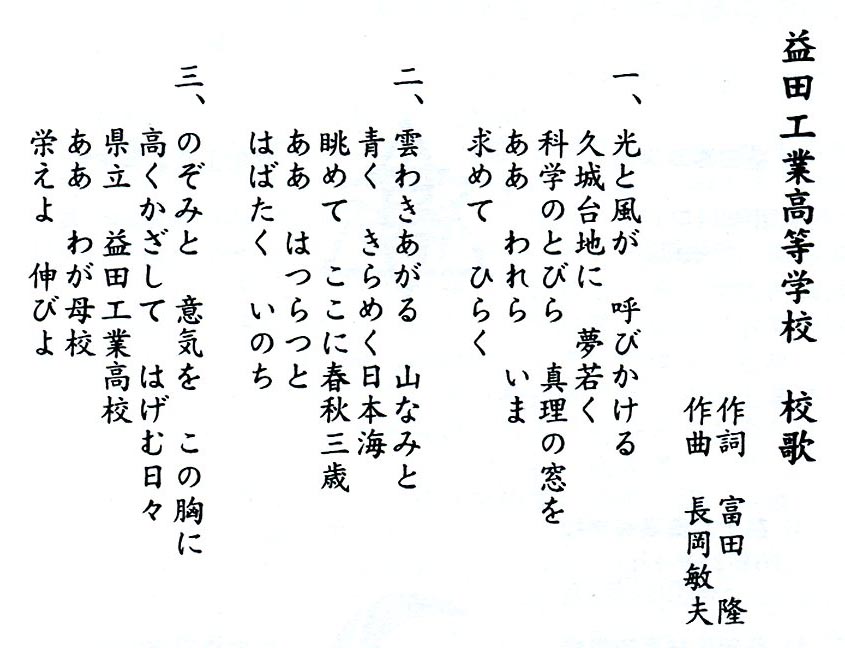 益田工業高等学校　校歌
作詞　富田　隆
作曲　長岡敏夫
一、
光と風が　呼びかける
久城台地に　夢若く
科学のとびら　真理の窓を
ああ　われら　いま
求めて　ひらく
二、
雲わきあがる　山なみと
青く　きらめく日本海
眺めて　ここに春秋三歳
ああ　はつらつと
はばたく　いのち
三、
のぞみと　意気を　この胸に
高くかざして　はげむ日々
県立　益田工業高校
ああ　わが母校
栄えよ　伸びよ